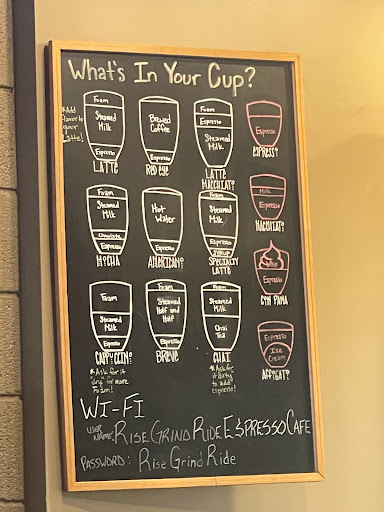 What's In Your Cup?
*Add
flavor to
your
Latte!
Foam
Steamed
Milk
Espresso
LATTE
Brewed
Coffee
Espresso
RED EYE
Foam
Espresso
Steamed
Milk
LATTE
MACCHIATO
Espresso
ESPRESSO
Foam
Steamed
Milk
Chocolate
Espresso
MOCHA
Hot
Water
Espresso
AMERICANO
Foam
Steamed
Milk
Espresso
Syrup
SPECIALTY
LATTE
Milk
Espresso
MACHIATO
Espresso
CON PANA
Foam
Steamed
Milk
Espresso
CAPPUCCINO
*Ask for it
dry for more
Foam!
Foam
Steamed
Half and
Half
Espresso
BREVE
Foam
Steamed
Milk
Chai
Tea
CHAI
*Ask for
it Dirty
to add
espresso!
Espresso
Ice
Cream
AFFOGATO
WI-FI
USER
NAME: RISE GRIND RIDE ESPRESSO CAFE
PASSWORD: Rise Grind Ride